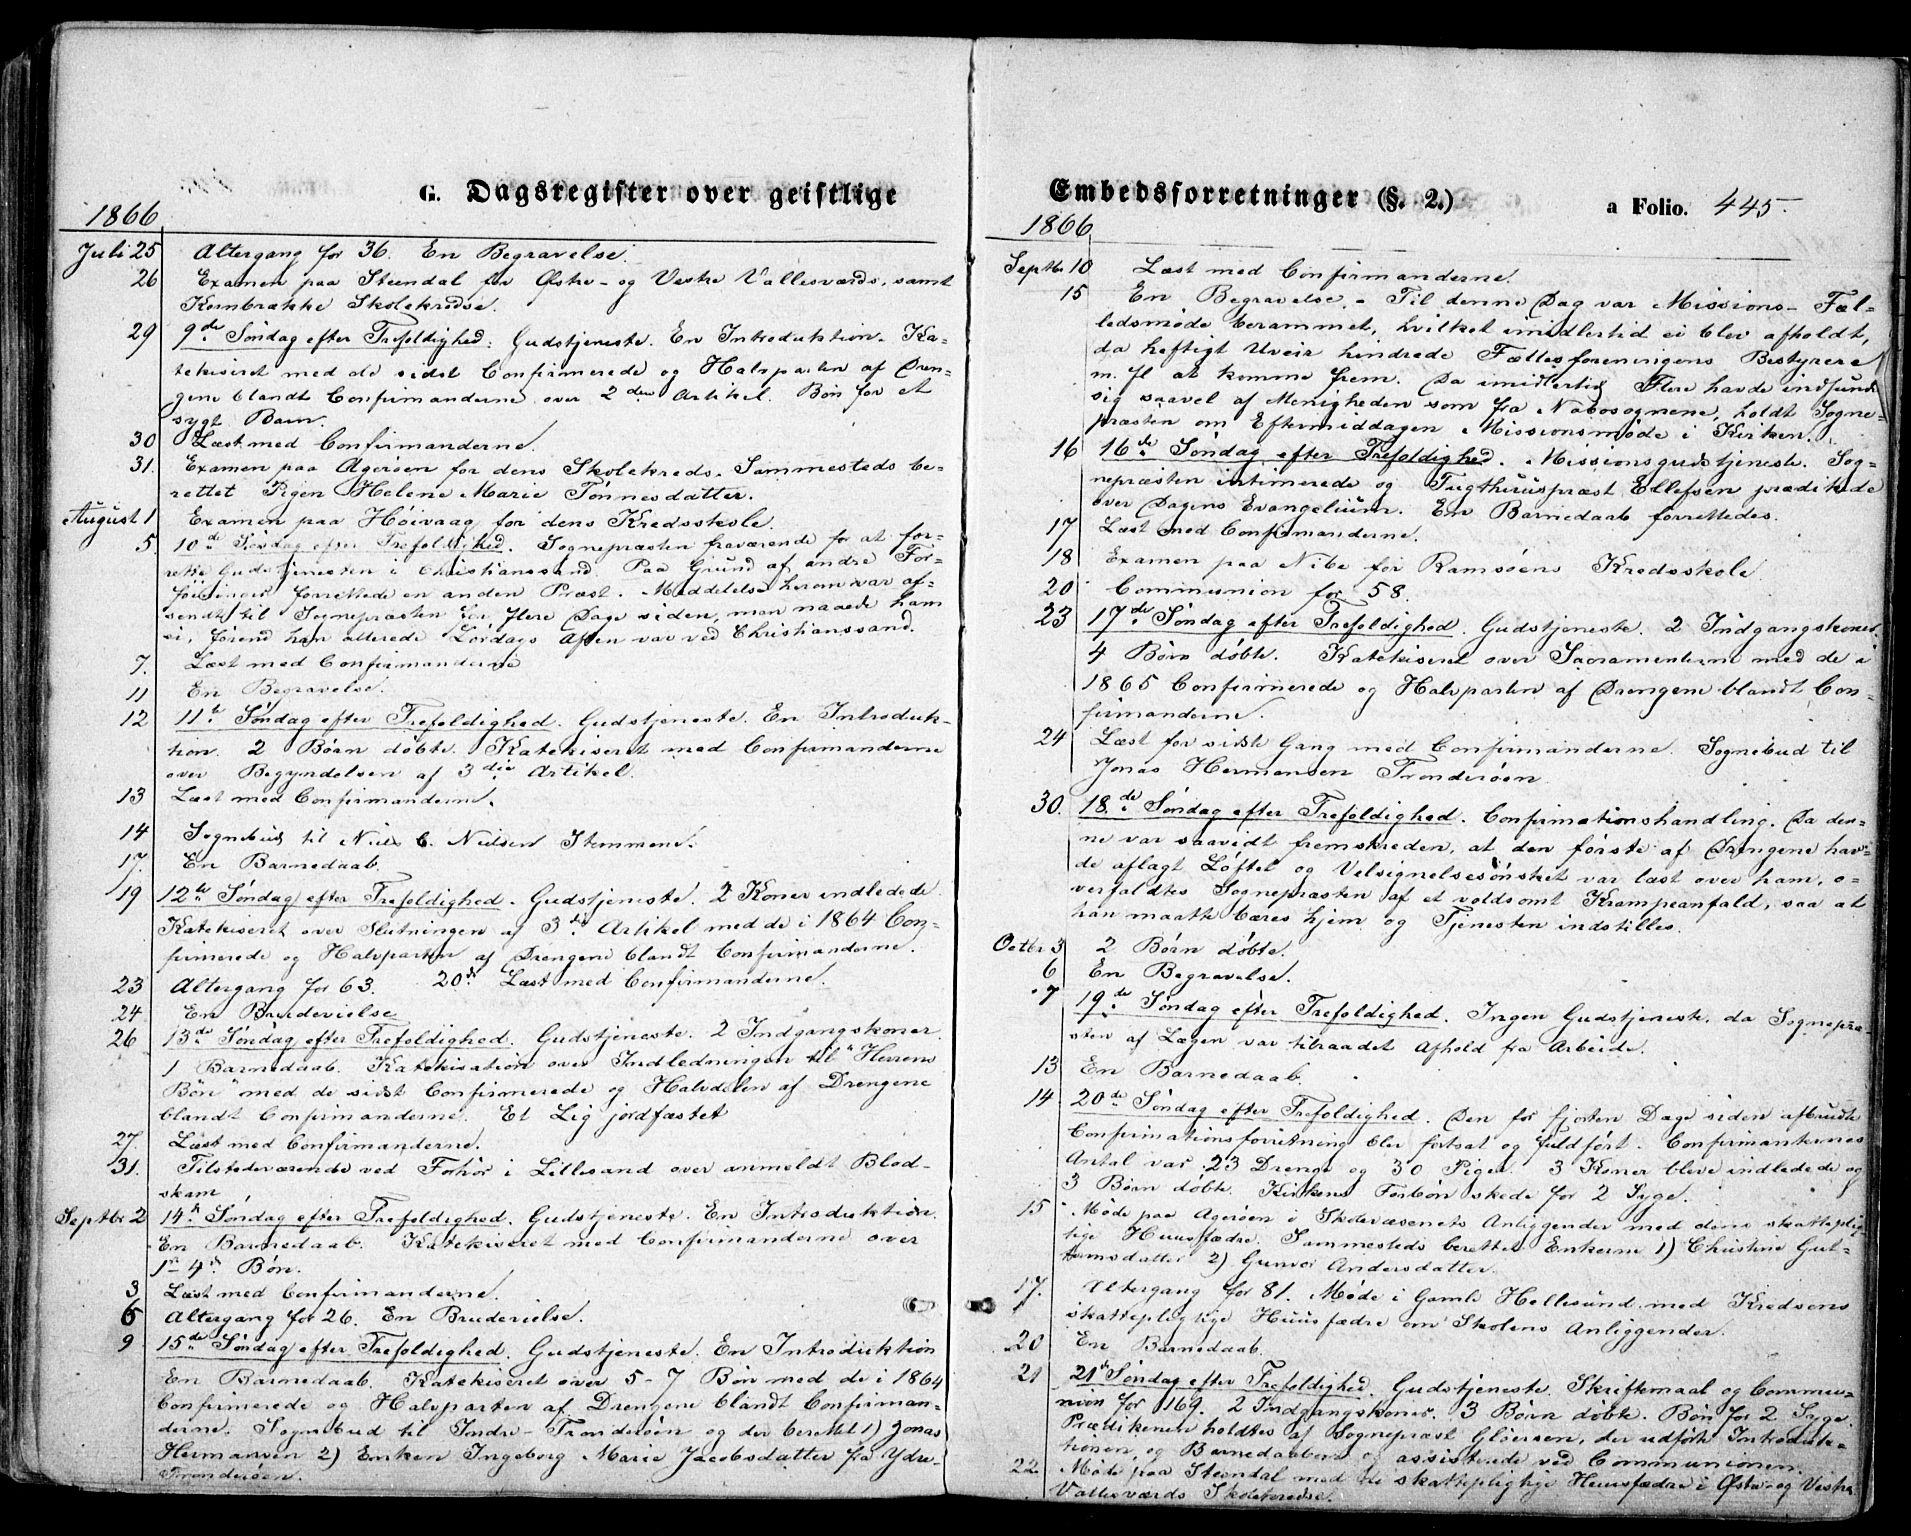 G. Dagsregister over geistlige
1866
Juli 25 Altergang for 36. En Begravelse.
26 Examen paa Steendal for Østre- og Vestre Vallesværds, samt
Kjembrække Skolekredse.
29 9de Søndag efter Trefoldighed: Gudstjeneste. En Introduktion. Ka-
tekiseret med de sidst Confirmerede og Halvparten af Dren-
gene blandt Confirmanderne over 2den Artikel. Bøn for et
sygt Barn.
30 Læst med Confirmanderne.
31. Examen paa Agerøen for dens Skolekreds. Sammesteds be-
rettet Pigen Helene Marie Tønnesdatter.
August 1 Examen paa Høivaag for dens Kredsskole.
5. 10de Søndag efter Trefoldighed. Sognepræsten fraværende for at for-
rette Gudstjenesten i Christianssand. Paa Grund af andre For-
føininger forrettede en anden Præst. Meddelelse herom var af-
sendt til Sognepræsten for flere Dage siden, man naaede ham
ei, førend han allerede Lørdags Aften var ved Christianssand.
7. Læst med Confirmanderne
11 En Begravelse.
12 11te Søndag efter Trefoldighed. Gudstjeneste. En Introduk-
tion. 2 Børn døbte. Katekiseret med Confirmanderne
over Begyndelsen af 3die Artikel.
13 Læst med Confirmanderne.
14 Sognebud til Niels C. Nielsen Stemmene.
17. En Barnedaab.
19 12te Søndag efter Trefoldighed. Gudstjeneste. 2 Koner indledede.
Katekiseret over Slutningen af 3die Artikel med de i 1864 Con-
firmerede og Halvparten af Drengene blandt Confirmanderne.
23 Altergang for 63. 20de Læst med Confirmanderne.
24 En Brudevielse
26 13de Søndag efter Trefoldighed. Gudstjeneste. 2 Indgangskoner.
1 Barnedaab. Katekisation over Indledningen til "Herrens
Bøn" med de sidst Confirmerede og Halvdelen af Drengene
blandt Confirmanderne. Et Lig jordfæstet
27. Læst med Confirmanderne.
31. Tilstedeværende ved Forhør i Lillesand over anmeldt Blod-
skam
Septbr 2 14de Søndag efter Trefoldighed. Gudstjeneste. En Introduktion.
En Barnedaab. Katekiseret med Confirmanderne over
1ste-4de Bøn.
3 Læst med Confirmanderne.
6 Altergang for 26. En Brudevielse.
9 15de Søndag efter Trefoldighed. Gudstjeneste. En Introduktion
En Barnedaab. Katekiseret over 5-7 Bøn med de i 1864
Confirmerede og Halvparten af Drengene blandt Confirman-
derne. Sognebud til Indre-Trønderøen og der berettet 1) Jonas
Hermansen 2) Enken Ingeborg Marie Jacobsdatter fra Ydre-
Trønderøen.
Embedsforretninger (§. 2.) a Folio. 445.
1866
Septbr 10 Læst med Confirmanderne.
15 En Begravelse. - Til denne Dag var Missions-Fæl-
ledsmøde berammet, hvilket imidlertid ei blev afholdt,
da heftigt Uveir hindrede Fællesforeningens Bestyrere
m. fl at komme frem. Da imidlertid Flere havde indfundet
sig saavel af Menigheden som fra Nabosognene, holdt Sogne-
præsten om Eftermiddagen Missionsmøde i Kirken.
16 16de Søndag efter Trefoldighed. Missionsgudstjeneste. Sog-
nepræsten intimerede og Tugthuuspræst Ellefsen prædikede
over Dagens Evangelium. En Barnedaab forrettedes.
17 Læst med Confirmanderne.
18 Examen paa Nibe for Ramsøens Kredsskole
20 Communion for 58.
23 17de Søndag efter Trefoldighed. Gudstjeneste. 2 Indgangskoner.
4 Børn døbte. Katekiseret over Sacramenterne med de i
1865 Confirmerede og Halvparten af Drengene blandt Con-
firmanderne.
24 Læst for sidste Gang med Confirmanderne. Sognebud til
Jonas Hermansen Trønderøen
30. 18de Søndag efter Trefoldighed. Confirmationshandling. Da den-
ne var saavidt fremskreden, at den første af Drengene hav-
de aflagt Løftet og Velsignelsesønsket var læst over ham, o-
verfaldtes Sognepræsten af et voldsomt Krampeanfald, saa at
han maatte bæres hjem og Tjenesten indstilles.
Octbr 3 2 Børn døbte.
6 En Begravelse.
7 19de Søndag efter Trefoldighed. Ingen Gudstjeneste, da Sognepræ-
sten af Lægen var tilraadet Afhold fra Arbeide.
13 En Barnedaab.
14 20de Søndag efter Trefoldighed. Den for fjorten Dage siden afbrudte
Confirmationsforretning blev fortsat og fuldført. Confirmanternes
Antal var 23 Drenge og 30 Piger. 3 Koner bleve indledede og
3 Børn døbte. Kirkens Forbøn skede for 2 Syge.
15 Møde paa Agerøen i Skolevæsenets Anliggender med dens skatteplig-
tige Huusfædre. Sammesteds berettet Enkerne 1) Christine Gut-
tormsdatter 2) Gunvor Andersdatter.
17. Altergang for 81. Møde i Gamle Hellesund med Kredsens
skattepligtige Huusfædre om Skolens Anliggender.
20 En Barnedaab.
21 21de Søndag efter Trefoldighed. Gudstjeneste. Skriftemaal og Commu-
nion for 169. 2 Indgangskoner. 3 Børn døbte. Bøn for 2 Syge.
Prædikenen holdtes af Sognepræst Gløersen, der udførte Introduk-
tionen og Barnedaaben og assisterede ved Communionen.
22. Møde paa Steendal med de skattepligtige Huusfædre i Østre og Vestre
Vallesværds Skolekredse.